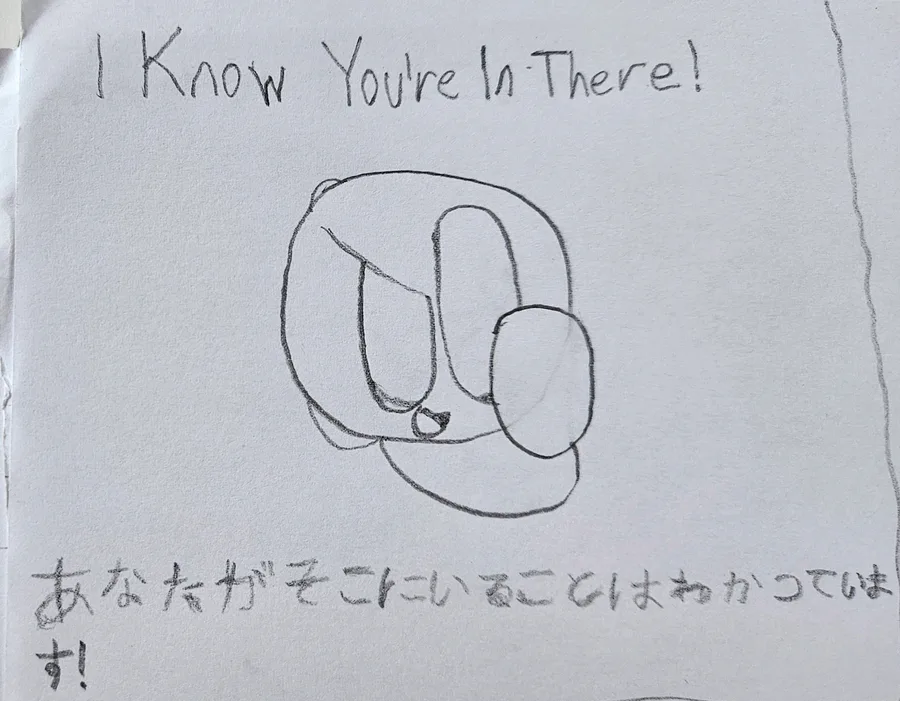 I Know You're In There!
あなたがそこにいることはわかっていま
す!